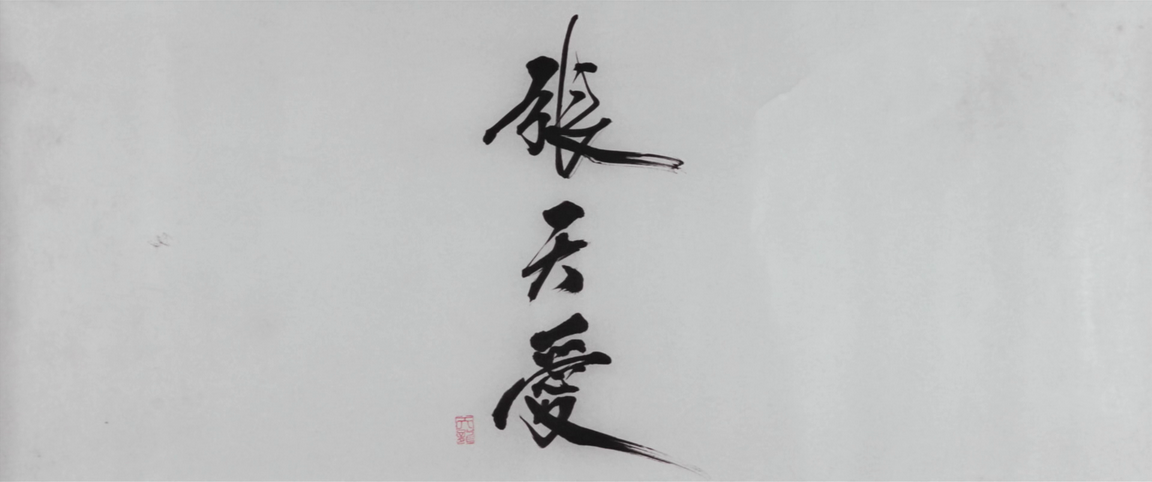 張天愛